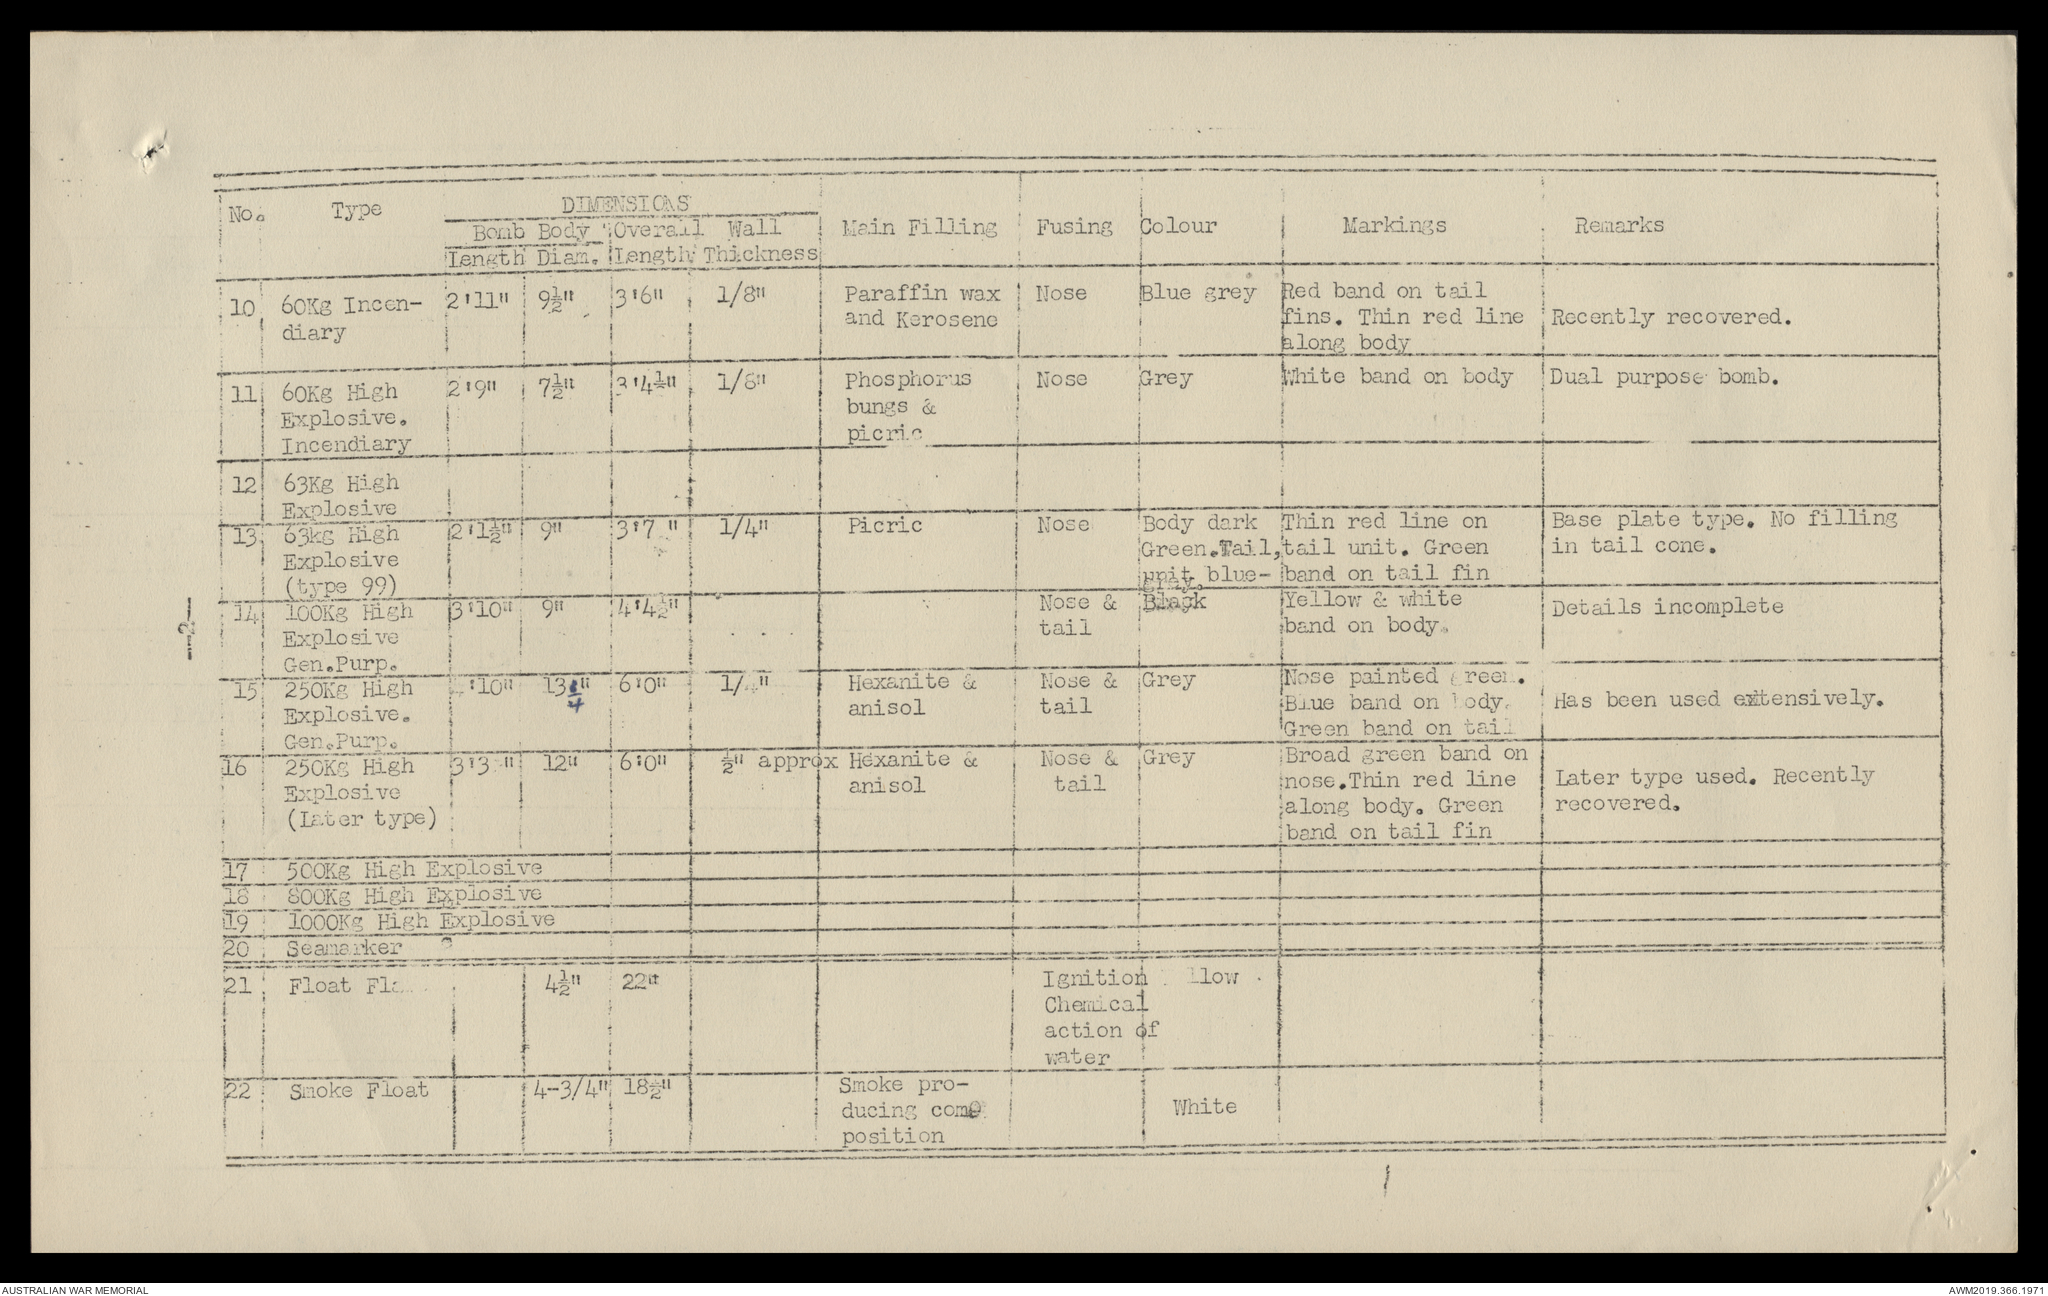 No. Type DIMENSIONS Main Filling Fusing Colour Markings Remarks
Bomb Body Overall Wall
Length Diam. Length Thickness
10 60Kg Incen- 2'11" 9½" 3'6" 1/8" Paraffin wax Nose Blue grey Red band on tail
diary and Kerosene fins. Thin red line Recently recovered.
along body
11 60Kg High 2'9" 7½" 3'4½" 1/8" Phosphorus Nose Grey White band on body Dual purpose bomb.
Explosive. bungs &
Incendiary picric
12 63Kg High
Explosive
13 63kg High 2'1½" 9" 3'7 " 1/4" Picric Nose Body dark Thin red line on Base plate type. No filling
Explosive Green.Tail, tail unit. Green in tail cone.
(type 99) unit blue- band on tail fin
grey.
14 100Kg High 3'10" 9" 4'4½" Nose & Black Yellow & white Details incomplete
Explosive tail band on body.
Gen.Purp.
-2-
15 250Kg High 4'10" 13¼" 6'0" 1/4" Hexanite & Nose & Grey Nose painted green.
Explosive. anisol tail Blue band on body. Has been used extensively.
Gen.Purp. Green band on tail
16 250Kg High 3'3 " 12" 6'0" ½" approx Hexanite & Nose & Grey Broad green band on
Explosive anisol tail nose.Thin red line Later type used. Recently
(Later type) along body. Green recovered.
band on tail fin
17 500Kg High Explosive
18 800Kg High Explosive
19 1000Kg High Explosive
20 Seamarker
21 Float 4½" 22" Ignition
Chemical
action of
water
22 Smoke Float 4-3/4" 18½" Smoke pro-
ducing com White
position
AUSTRALIAN WAR MEMORIAL AWM2019.366.1971